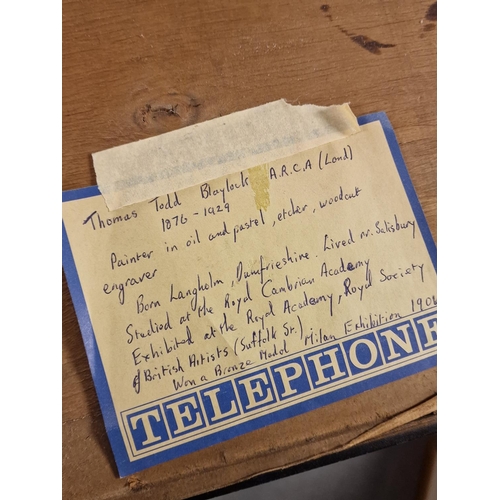 Thomas Todd Blaylock A.R.C.A (Lond)
1876-1929
Painter in oil and pastel, etcher, woodcut
engraver
Born Langholm, Dumfrieshire. Lived nr. Salisbury
Studied at the Royal Cambrian Academy
Exhibited at the Royal Academy, Royal Society
of British Artists (Suffolk St.)
Won a Bronze Medal Milan Exhibition
TELEPHONE